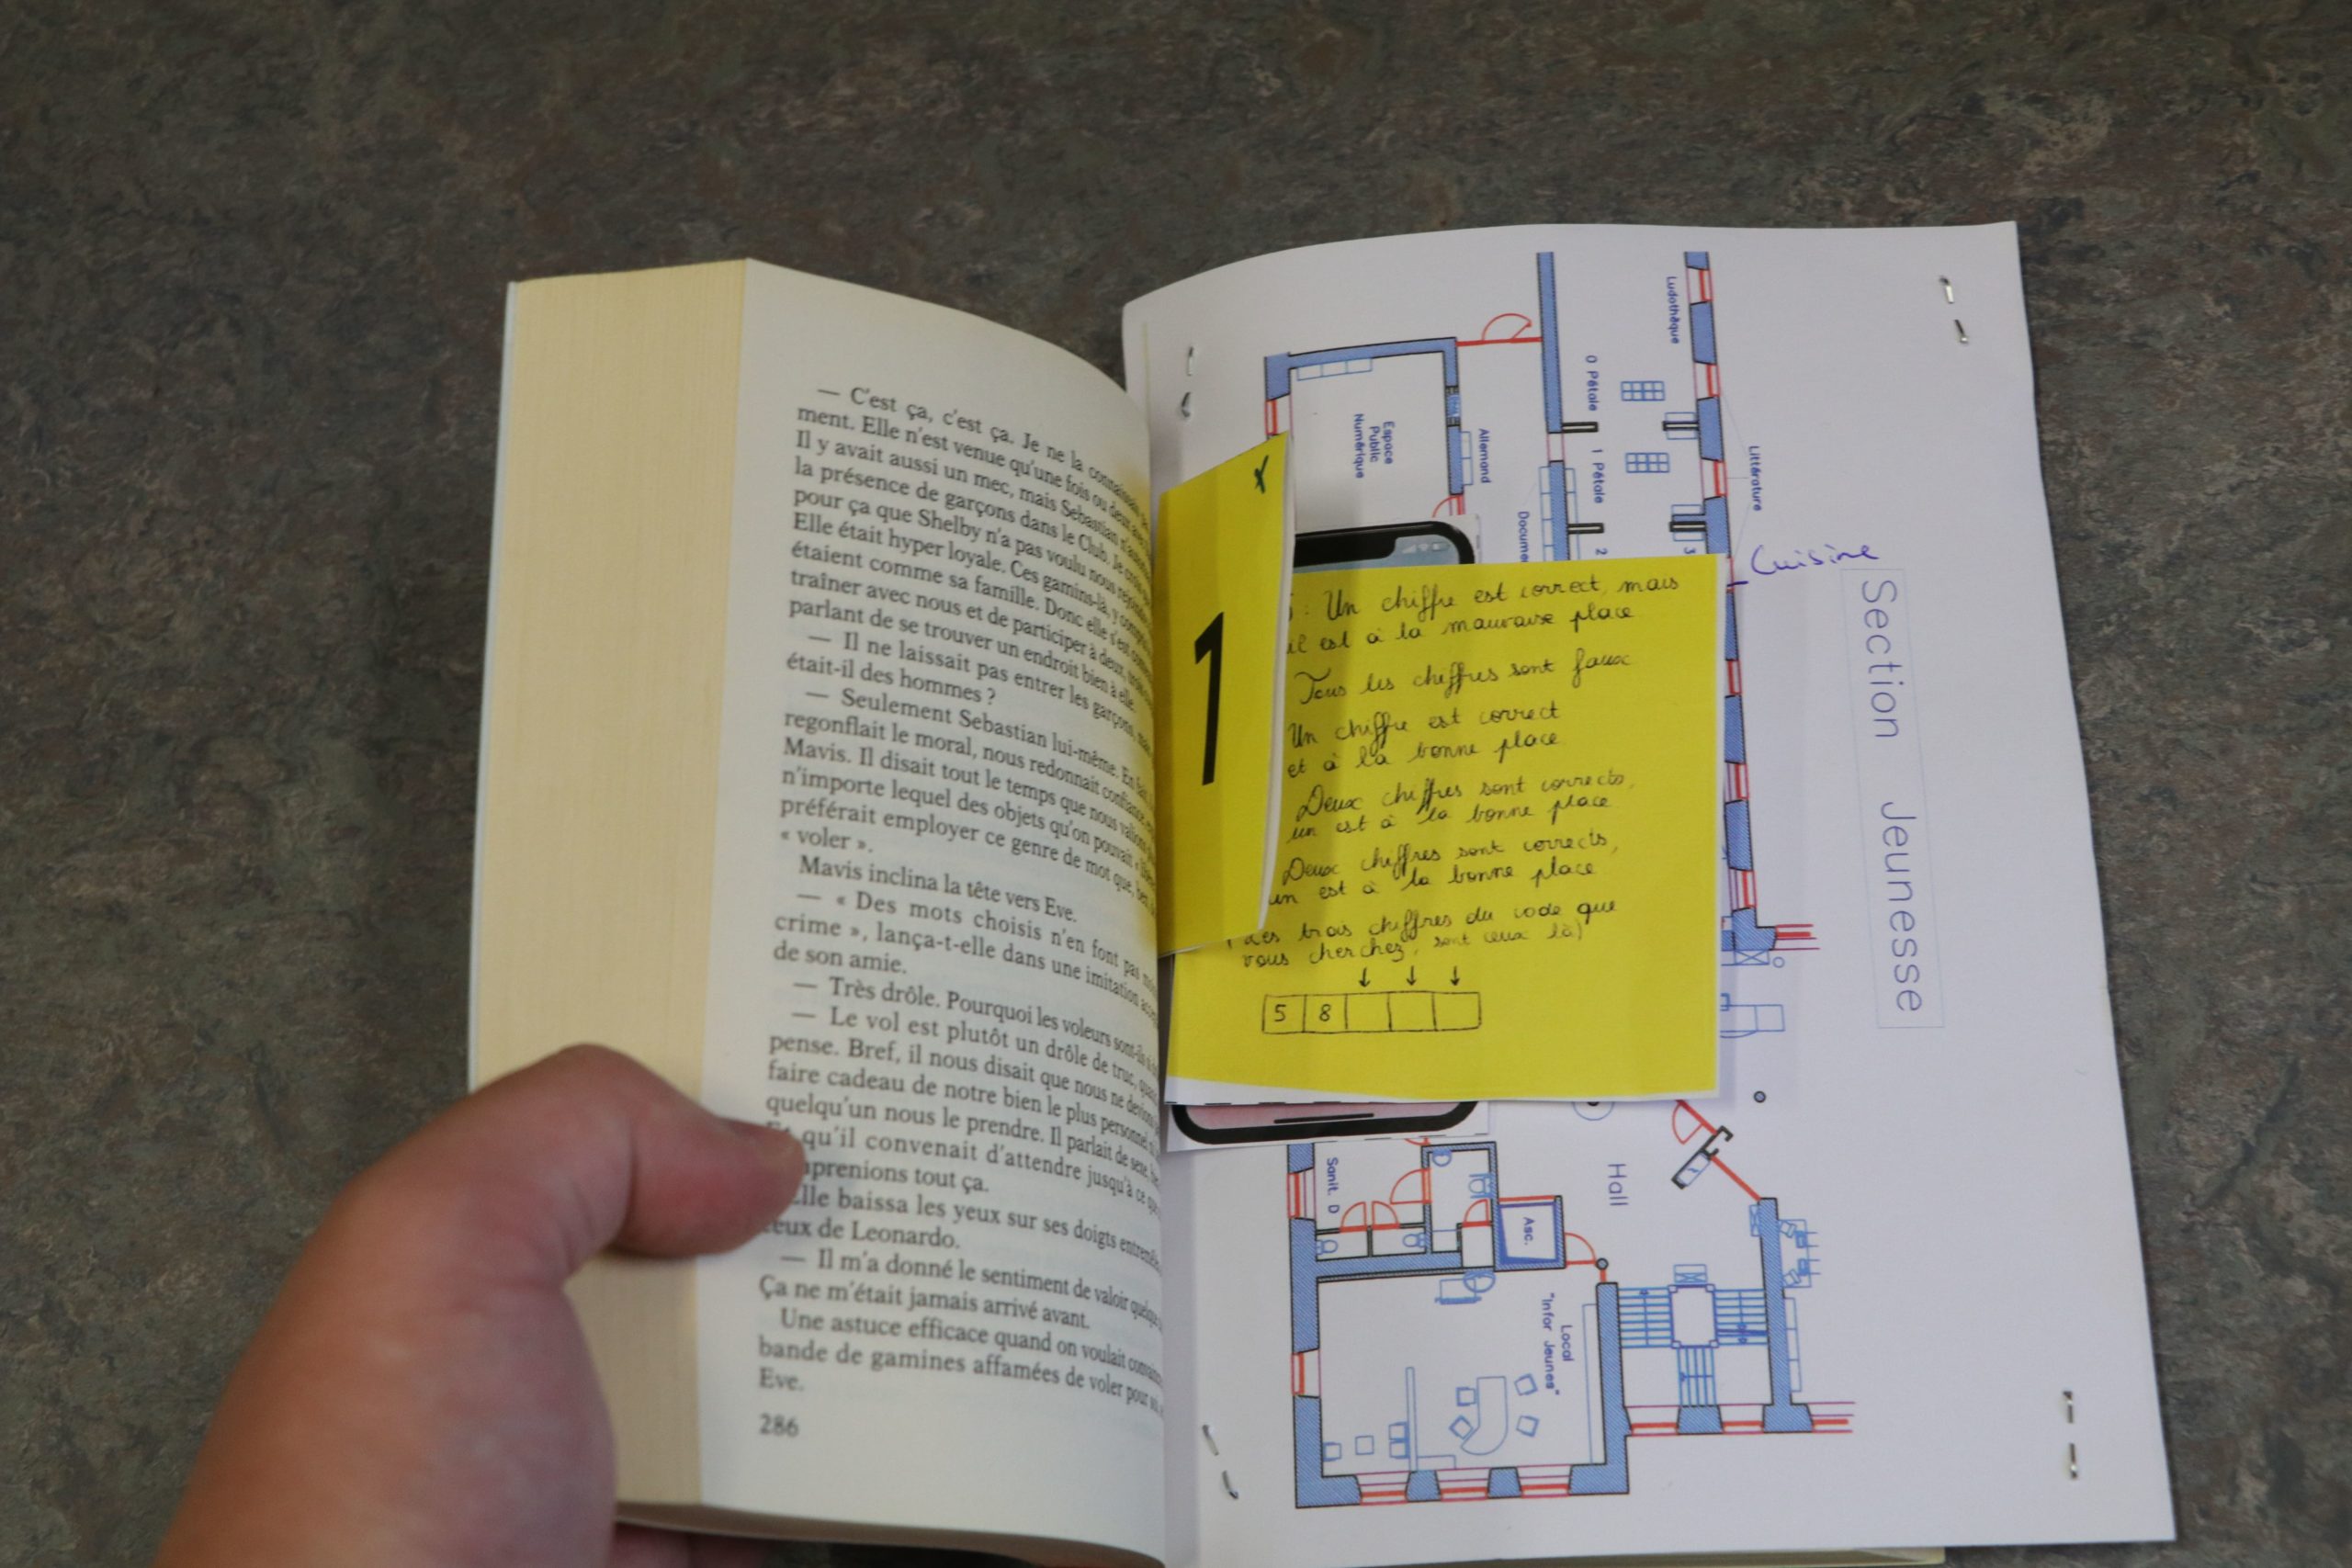 — C'est ça, c'est ça. Je ne la connaissais
ment. Elle n'est venue qu'une fois ou deux
Il y avait aussi un mec, mais Sebastian
la présence de garçons dans le Club. Je crois
pour ça que Shelby n'a pas voulu nous
Elle était hyper loyale. Ces gamins-là, y
étaient comme sa famille. Donc elle s'est
traîner avec nous et de participer à deux,
parlant de se trouver un endroit bien à elle.
— Il ne laissait pas entrer les garçons,
était-il des hommes ?
— Seulement Sebastian lui-même. En fait,
regonflait le moral, nous redonnait confiance
Mavis. Il disait tout le temps que nous valions
n'importe lequel des objets qu'on pouvait
préférait employer ce genre de mot que,
« voler ».
Mavis inclina la tête vers Eve.
— « Des mots choisis n'en font pas
crime », lança-t-elle dans une imitation
de son amie.
— Très drôle. Pourquoi les voleurs sont-ils
— Le vol est plutôt un drôle de truc, quand
pense. Bref, il nous disait que nous ne devions
faire cadeau de notre bien le plus personnel,
quelqu'un nous le prendre. Il parlait de sexe,
qu'il convenait d'attendre jusqu'à ce que
tout ça.
Elle baissa les yeux sur ses doigts
de Leonardo.
— Il m'a donné le sentiment de valoir quelque
Ça ne m'était jamais arrivé avant.
Une astuce efficace quand on voulait
bande de gamines affamées de voler pour
Eve.
286
1
: Un chiffre est correct, mais
il est à la mauvaise place
Tous les chiffres sont faux
Un chiffre est correct
et à la bonne place
Deux chiffres sont corrects,
un est à la bonne place
Deux chiffres sont corrects,
un est à la bonne place
Les trois chiffres du code que
vous cherchez, sont ceux là)
↓ ↓ ↓
5 8
Ludothèque
0 Pétale
1 Pétale
2
3
Littérature
Cuisine
Espace
Public
Numérique
Allemand
Section Jeunesse
Hall
Sanit. D
Asc.
Local
"Infor Jeunes"